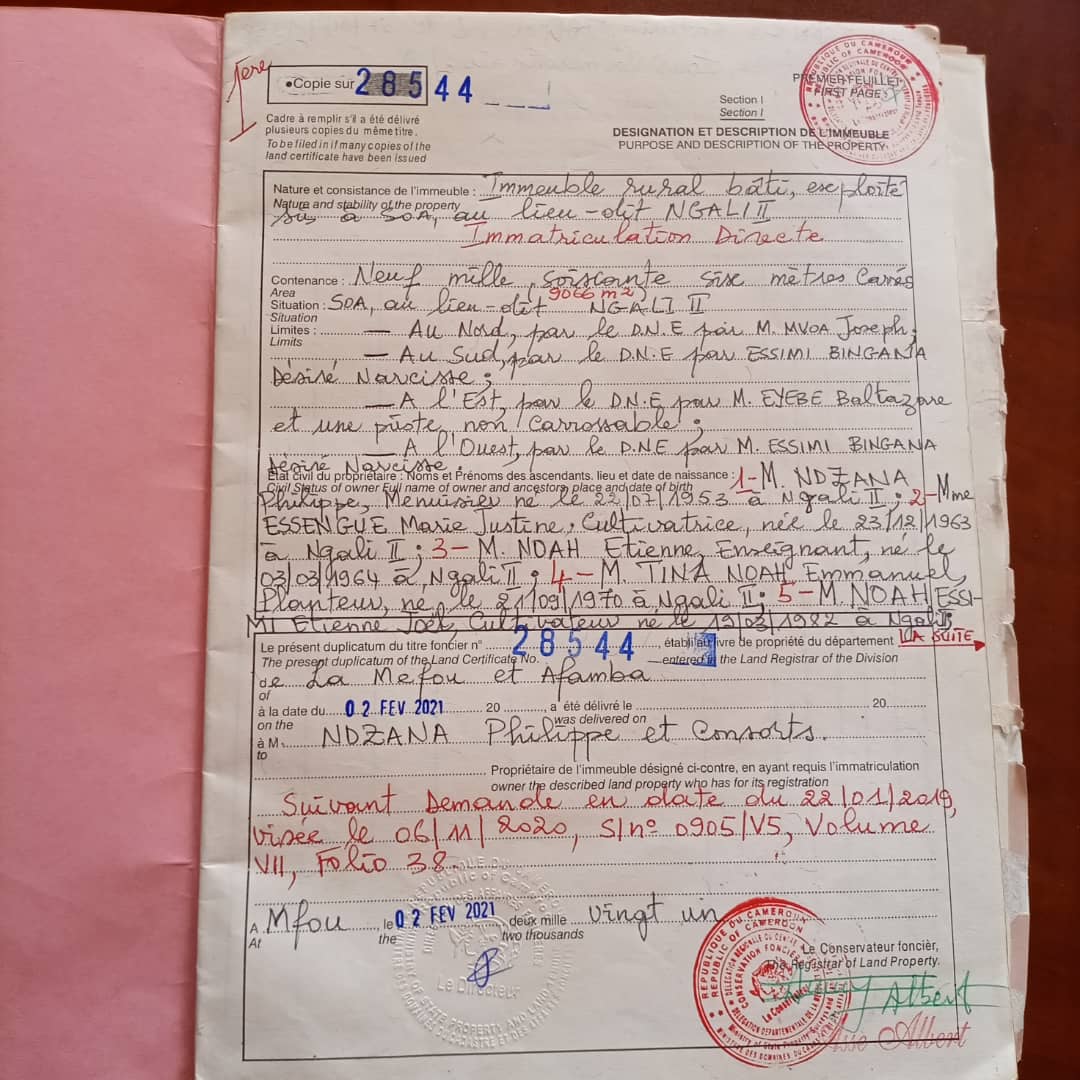 1ere
•Copie sur 28544
Cadre à remplir s'il a été délivré
plusieurs copies du même titre.
To be filed in if many copies of the
land certificate have been issued
PREMIER FEUILLET
FIRST PAGE
Section I
Section I
DESIGNATION ET DESCRIPTION DE L'IMMEUBLE
PURPOSE AND DESCRIPTION OF THE PROPERTY
Nature et consistance de l'immeuble : Immeuble rural bâti, exploité
Nature and stability of the property
sis à SOA, au lieu-dit NGALI II
Immatriculation Directe
Contenance : Neuf mille, soixante six mètres Carrés
Area
9066 m2
Situation : SOA, au lieu-dit NGALI II
Situation
Limites : — Au Nord, par le D.N.E par M. MVOA Joseph;
Limits
— Au Sud, par le D.N.E par ESSIMI BINGANA
Désiré Narcisse ;
— A l'Est, par le D.N.E par M. EYEBE Baltazare
et une piste non Carrossable ;
— A l'Ouest, par le D.N.E par M. ESSIMI BINGANA
Désiré Narcisse.
Etat civil du propriétaire : Noms et Prénoms des ascendants. lieu et date de naissance : 1- M. NDZANA
Civil Status of owner Full name of owner and ancestors, place and date of birth
Philippe, Menuisier né le 22/07/1953 à Ngali II ; 2- Mme
ESSENGUE Marie Justine, Cultivatrice, née le 23/12/1963
à Ngali II ; 3- M. NOAH Etienne, Enseignant, né le
03/03/1964 à Ngali II ; 4- M. TINA NOAH Emmanuel,
Planteur, né le 21/09/1970 à Ngali II; 5- M. NOAH ESSI-
MI Etienne Joël, Cultivateur né le 19/03/1982 à Ngali II
Le présent duplicatum du titre foncier n° 28544, établi au livre de propriété du département LA SUITE
The present duplicatum of the Land Certificate No. entered in the Land Registrar of the Division
de La Mefou et Afamba
of
à la date du 02 FEV 2021 20 , a été délivré le 20
on the was delivered on
à M. NDZANA Philippe et Consorts.
to
Propriétaire de l'immeuble désigné ci-contre, en ayant requis l'immatriculation
owner the described land property who has for its registration
Suivant Demande en date du 22/01/2019,
visée le 06/11/2020, S/n° 0905/V5, Volume
VII, Folio 38.
A Mfou , le 02 FEV 2021 deux mille Vingt un
At the two thousands
Le Directeur
Le Conservateur foncier,
The Registrar of Land Property.
REPUBLIQUE DU CAMEROUN
REPUBLIC OF CAMEROON
Albert